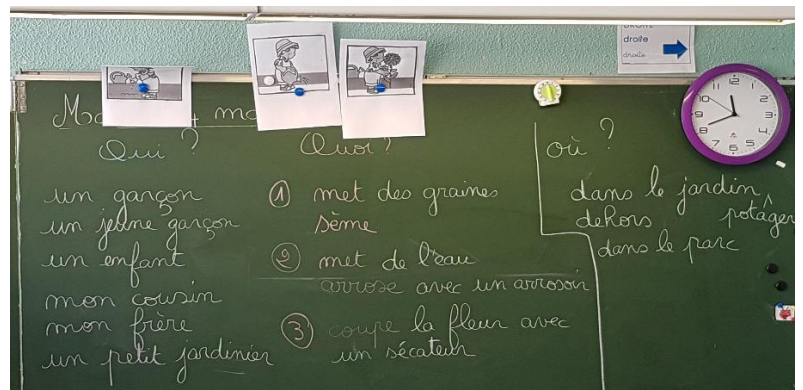 DROITE
droite
droite
Qui ?
un garçon
un jeune garçon
un enfant
mon cousin
mon frère
un petit jardinier
Quoi ?
① met des graines
sème
② met de l'eau
arrose avec un arrosoir
③ coupe la fleur avec
un sécateur
où ?
dans le jardin
potâger
dehors
dans le parc
12
1
2
3
4
5
6
7
8
9
10
11